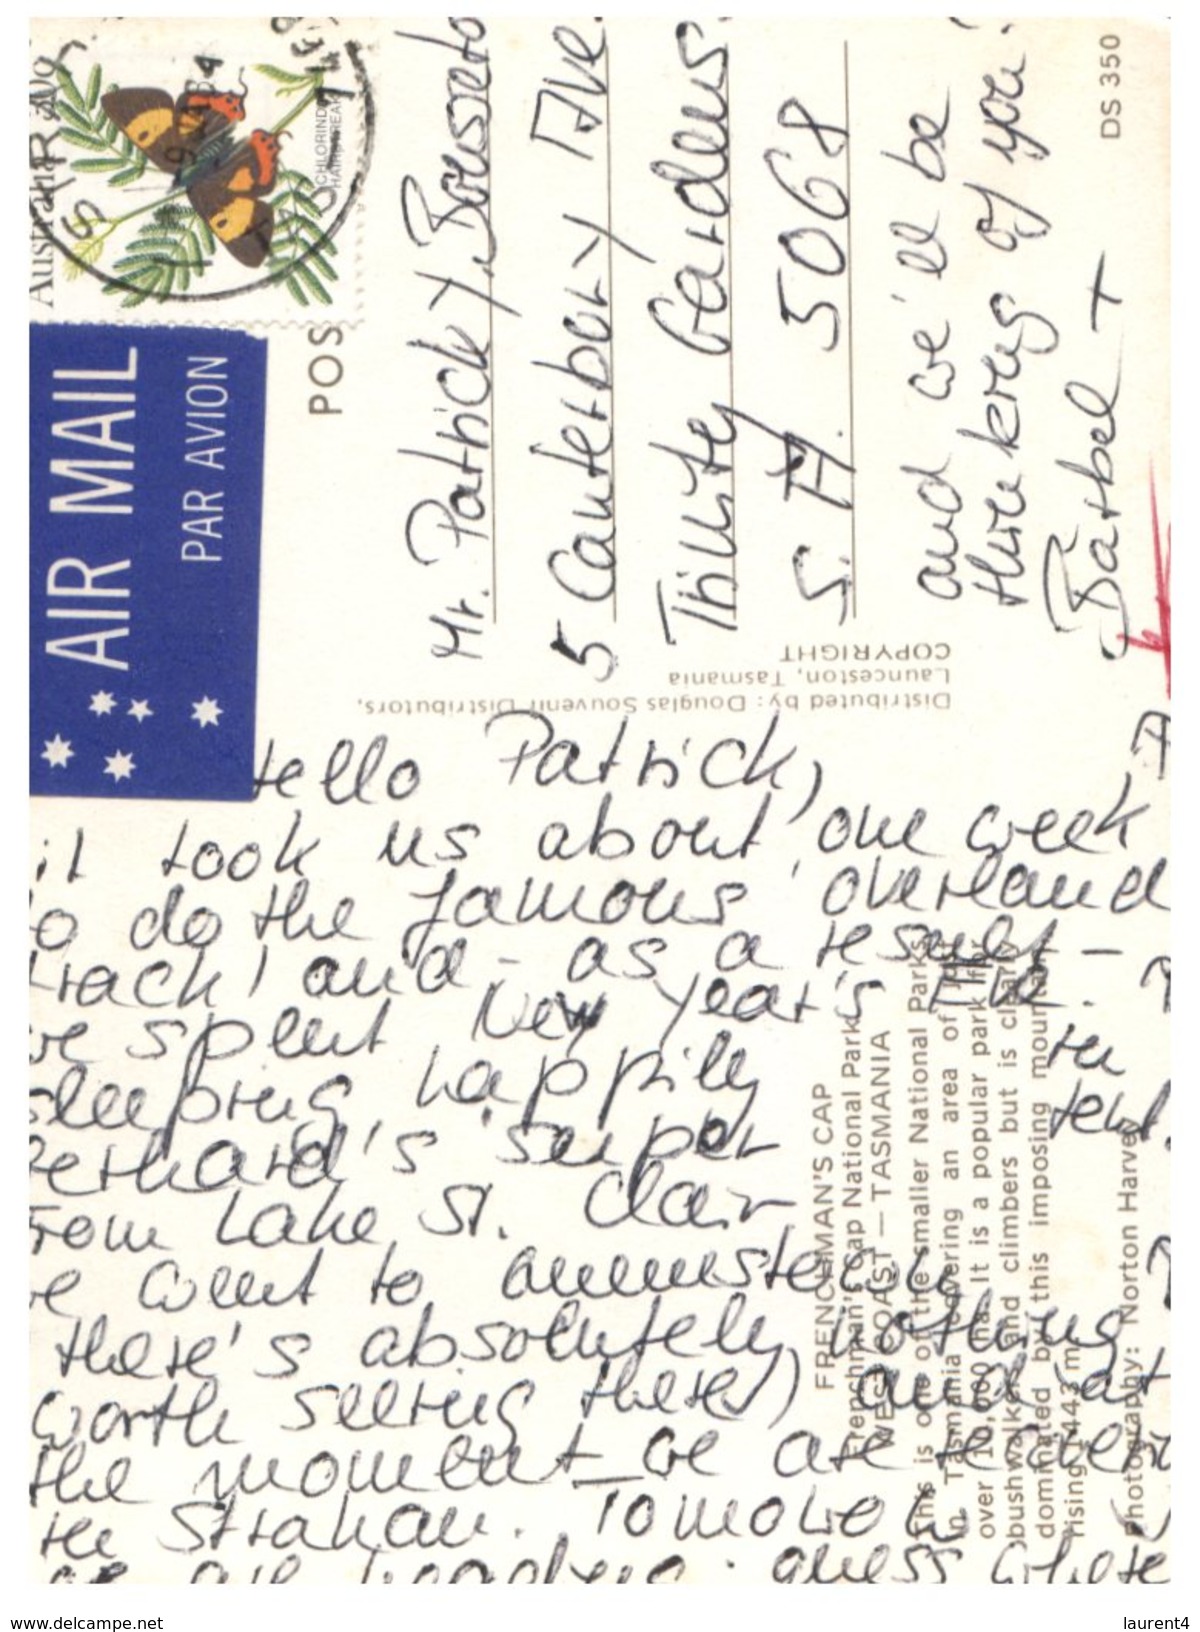 Australia 30c
CHLORINDA
HAIRSTREAK
AIR MAIL
PAR AVION
POS
Mr. Patrick
5 Canterbury Ave.
Trinity Gardens
S.A. 5068
and we'll be
thinking of you!
Bärbel +
DS 350
Distributed by: Douglas Souvenir Distributors,
Launceston, Tasmania
COPYRIGHT
Hello Patrick,
it took us about one week
to do the famous 'overland
track' and - as a result -
we spent New Year's Eve
sleeping happily in
Gerhard's super tent.
From Lake St. Clair
we went to
there's absolutely nothing
worth seeing there) and at
the moment we are
in Strahan. Tomorow
guess where
FRENCHMAN'S CAP
Frenchman's Cap National Park
WEST COAST — TASMANIA
This is one of the smaller National Parks
in Tasmania covering an area of just
over 10,000 ha. It is a popular park for
bushwalkers and climbers but is clearly
dominated by this imposing mountain
rising 1443 m.
Photography: Norton Harvey
www.delcampe.net
laurent4